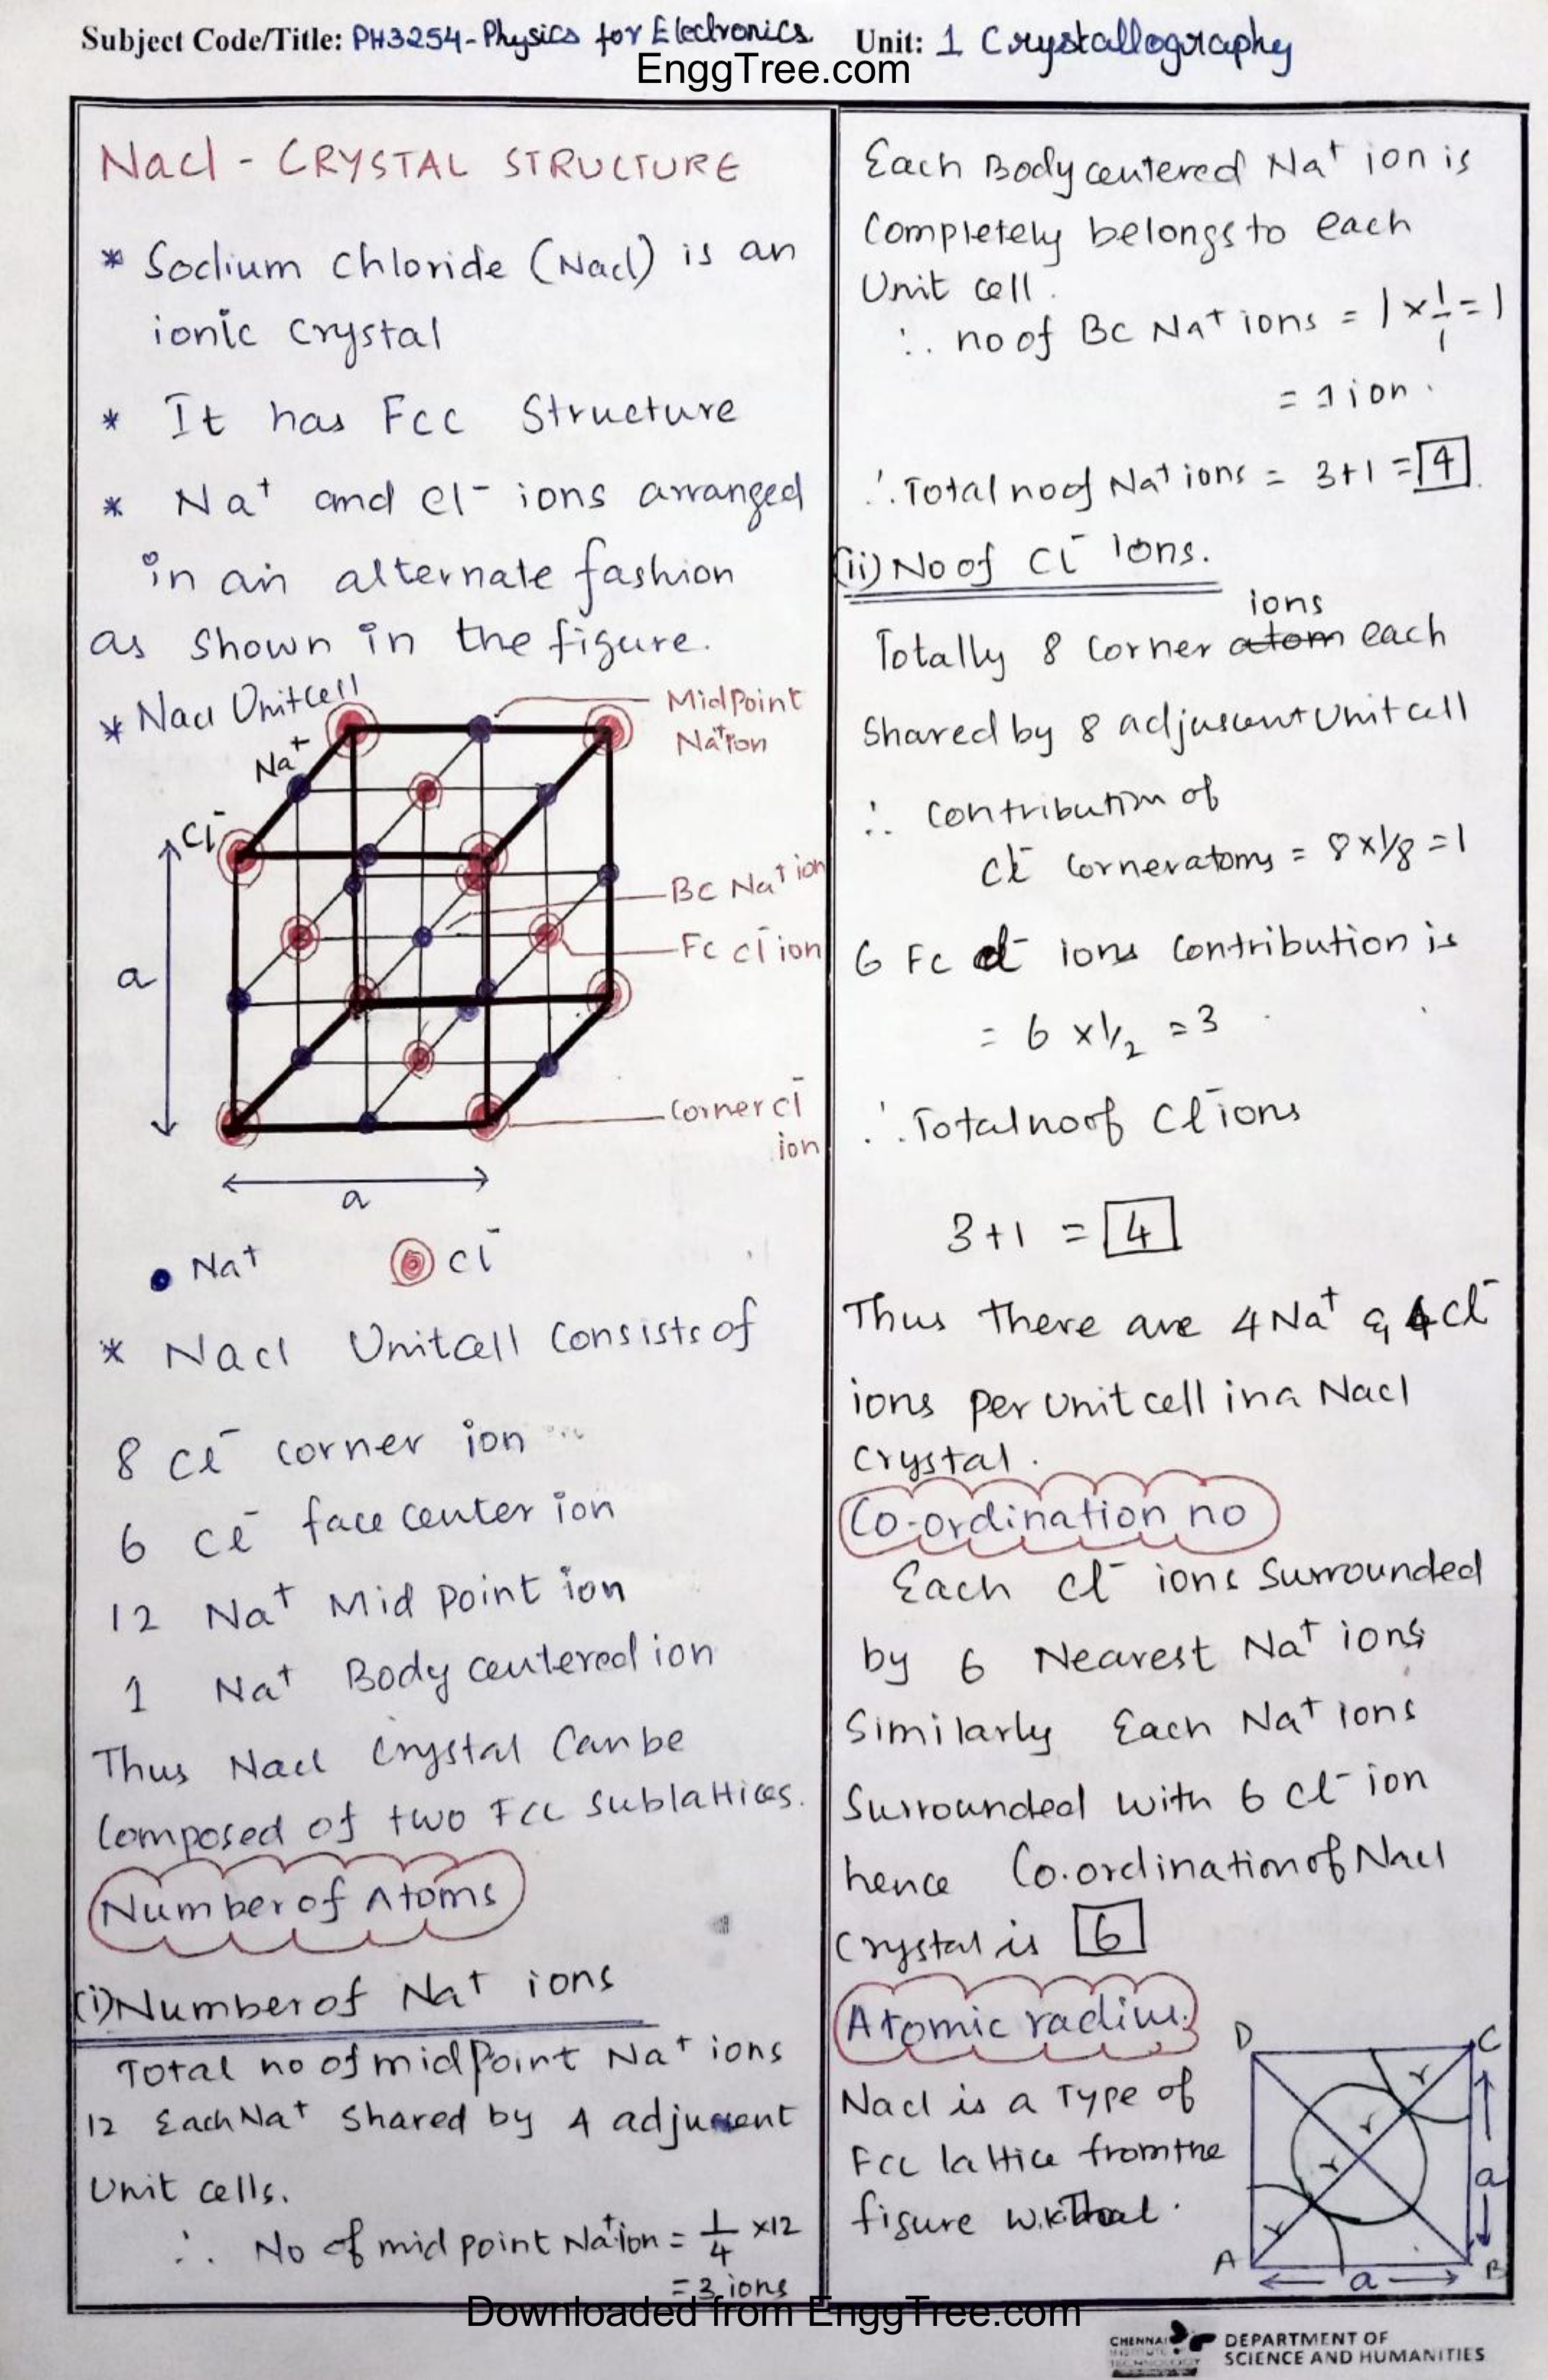 Subject Code/Title: PH3254-Physics for Electronics Unit: 1 Crystallography
EnggTree.com
Nacl - CRYSTAL STRUCTURE
* Sodium chloride (Nacl) is an
ionic crystal
* It has Fcc Structure
* Na⁺ and Cl⁻ ions arranged
in an alternate fashion
as shown in the figure.
* Nacl Unitcell
Midpoint
Na⁺ion
Na⁺
Cl⁻
BC Na⁺ ion
Fc cl⁻ ion
a
Corner cl⁻
ion
a
Na⁺ Cl⁻
* Nacl Unitcell Consists of
8 Cl⁻ corner ion
6 Cl⁻ face center ion
12 Na⁺ Mid point ion
1 Na⁺ Body centered ion
Thus Nacl Crystal Can be
Composed of two FCC sublattices.
Number of Atoms
(i) Number of Na⁺ ions
Total no of midpoint Na⁺ ions
12 Each Na⁺ shared by 4 adjuscent
Unit cells.
∴ No of mid point Na⁺ion = 1/4 ×12
= 3 ions
Each Body centered Na⁺ ion is
Completely belongs to each
Unit cell.
∴ no of BC Na⁺ ions = 1 × 1/1 = 1
= 1 ion.
∴ Total no of Na⁺ ions = 3+1 = 4
(ii) No of Cl⁻ Ions.
ions
Totally 8 Corner atom each
Shared by 8 adjuscent Unit cell
∴ Contribution of
Cl⁻ Corner atoms = 8 × 1/8 = 1
6 Fc cl⁻ ions Contribution is
= 6 × 1/2 = 3
∴ Total no of Cl⁻ ions
3+1 = 4
Thus there are 4 Na⁺ & 4 Cl⁻
ions per Unit cell in a Nacl
Crystal.
Co-ordination no
Each Cl⁻ ions Surrounded
by 6 Nearest Na⁺ ions
Similarly Each Na⁺ ions
Surrounded with 6 Cl⁻ ion
hence Co.ordination of Nacl
Crystal is 6
Atomic radius.
Nacl is a Type of
FCC lattice from the
figure W.K.That.
D C
r
r
r
r
a
A B
a
Downloaded from EnggTree.com
CHENNAI
INSTITUTE OF
TECHNOLOGY
DEPARTMENT OF
SCIENCE AND HUMANITIES